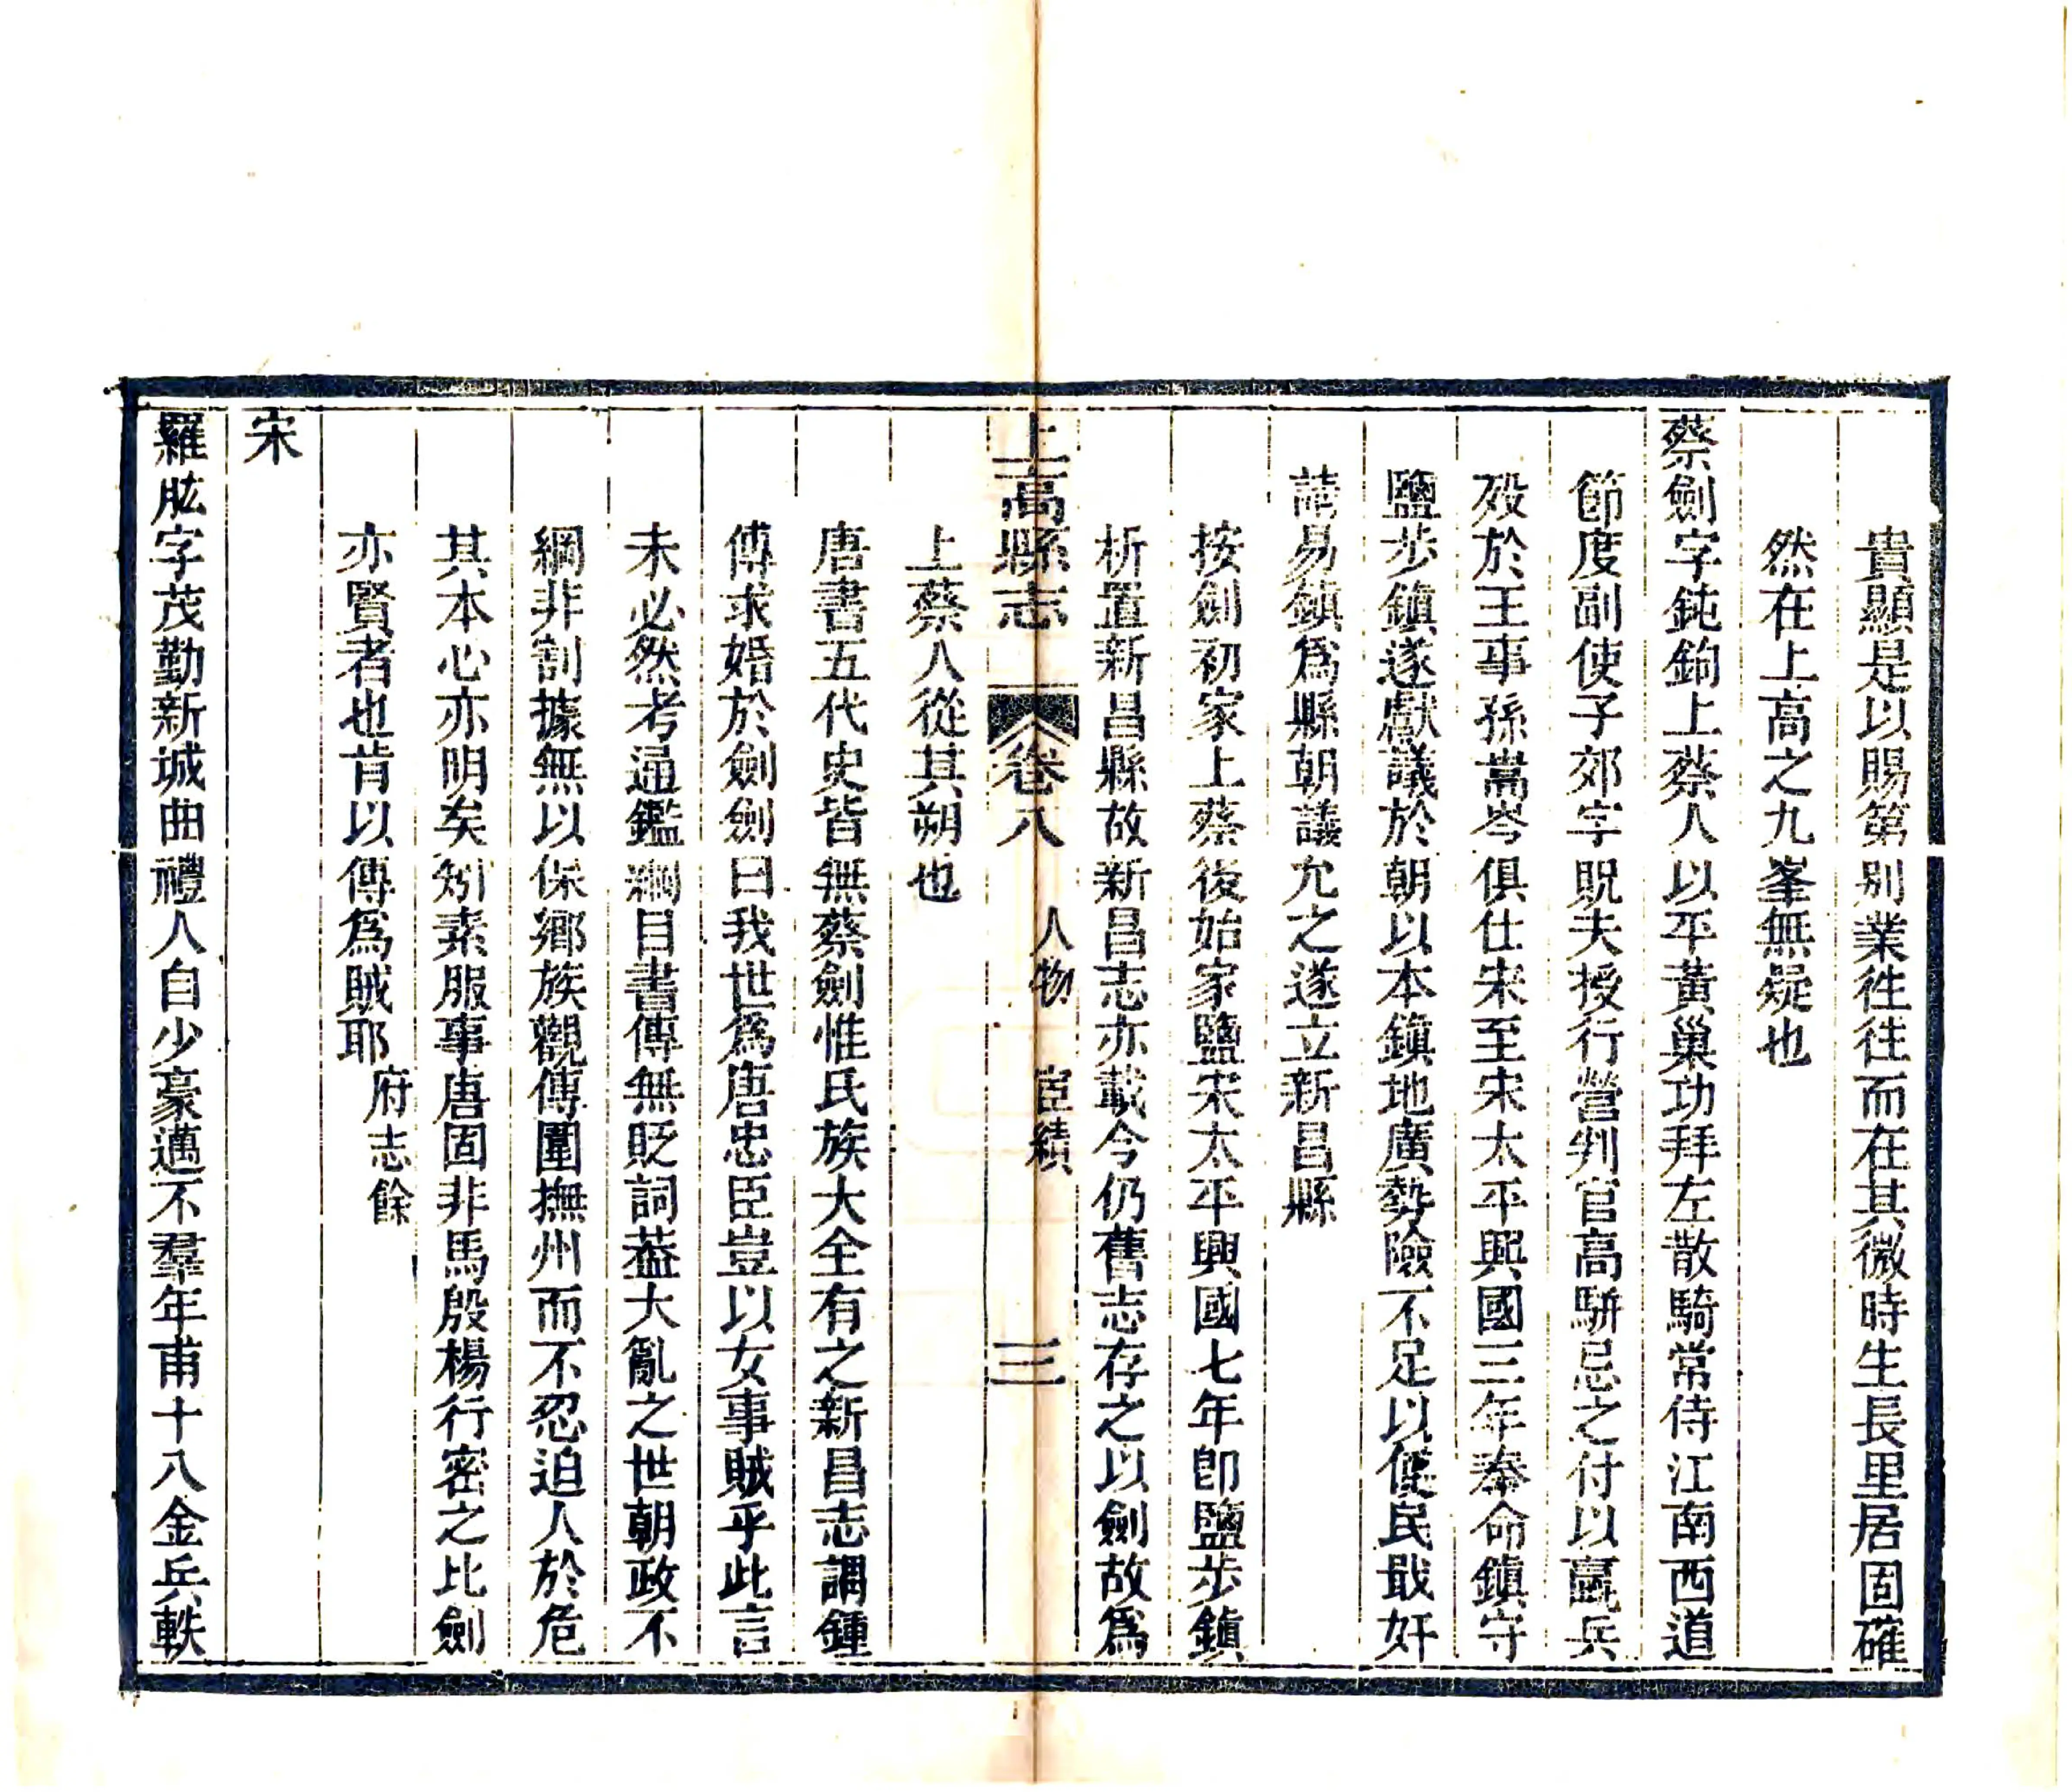 貴顯是以賜第別業徃徃而在其微時生長里居固確
然在上高之九峯無疑也
蔡劍字鈍鉤上蔡人以平黃巢功拜左散騎常侍江南西道
節度副使子郊字貺夫授行營判官高駢忌之付以羸兵
歿於王事孫嵩岑俱仕宋至宋太平興國三年奉命鎮守
鹽步鎮遂獻議於朝以本鎮地廣勢險不足以便民戢奸
請易鎮爲縣朝議允之遂立新昌縣
按劍初家上蔡後始家鹽宋太平興國七年卽鹽步鎮
析置新昌縣故新昌志亦載今仍舊志存之以劍故爲
上蔡人從其朔也
上高縣志 卷八 人物 宦績 三
唐書五代史皆無蔡劍惟氏族大全有之新昌志謂鍾
傳求婚於劍劍曰我世爲唐忠臣豈以女事賊乎此言
未必然考通鑑綱目書傳無貶詞葢大亂之世朝政不
綱非割據無以保鄉族觀傳圍撫州而不忍迫人於危
其本心亦明矣矧素服事唐固非馬殷楊行密之比劍
亦賢者也肯以傳爲賊耶府志餘
宋
羅肱字茂勤新城曲禮人自少豪邁不羣年甫十八金兵軼